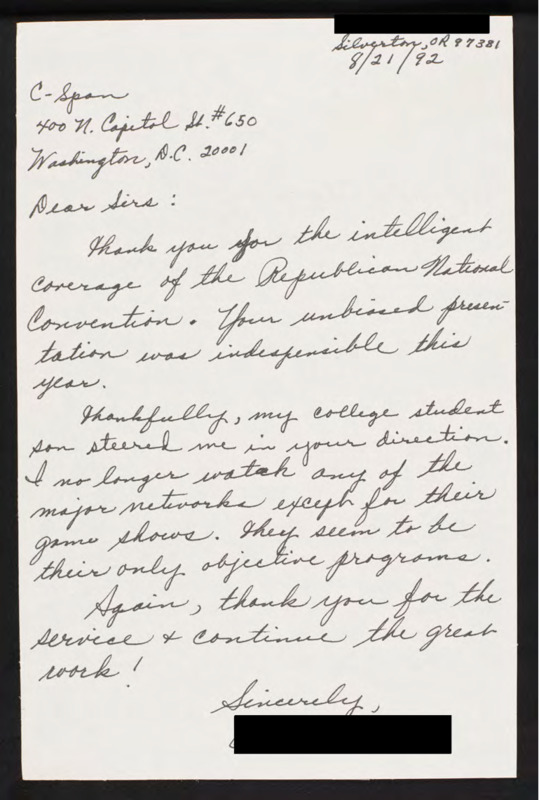 Silverton, OR 97381
8/21/92
C-Span
400 N. Capitol St. #650
Washington, D.C. 20001
Dear Sirs:
Thank you for the intelligent
coverage of the Republican National
Convention. Your unbiased presen-
tation was indespensible this
year.
Thankfully, my college student
son steered me in your direction.
I no longer watch any of the
major networks except for their
game shows. They seem to be
their only objective programs.
Again, thank you for the
service & continue the great
work!
Sincerely,